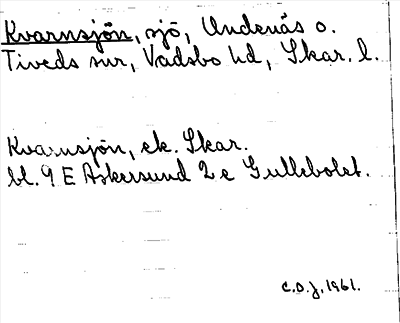 Kvarnsjön, sjö, Undenäs o.
Tiveds snr, Vadsbo hd, Skar. l.
Kvarnsjön, ek. Skar.
bl. 9 E Askersund 2 e Gullebolet.
C.O.J. 1961.